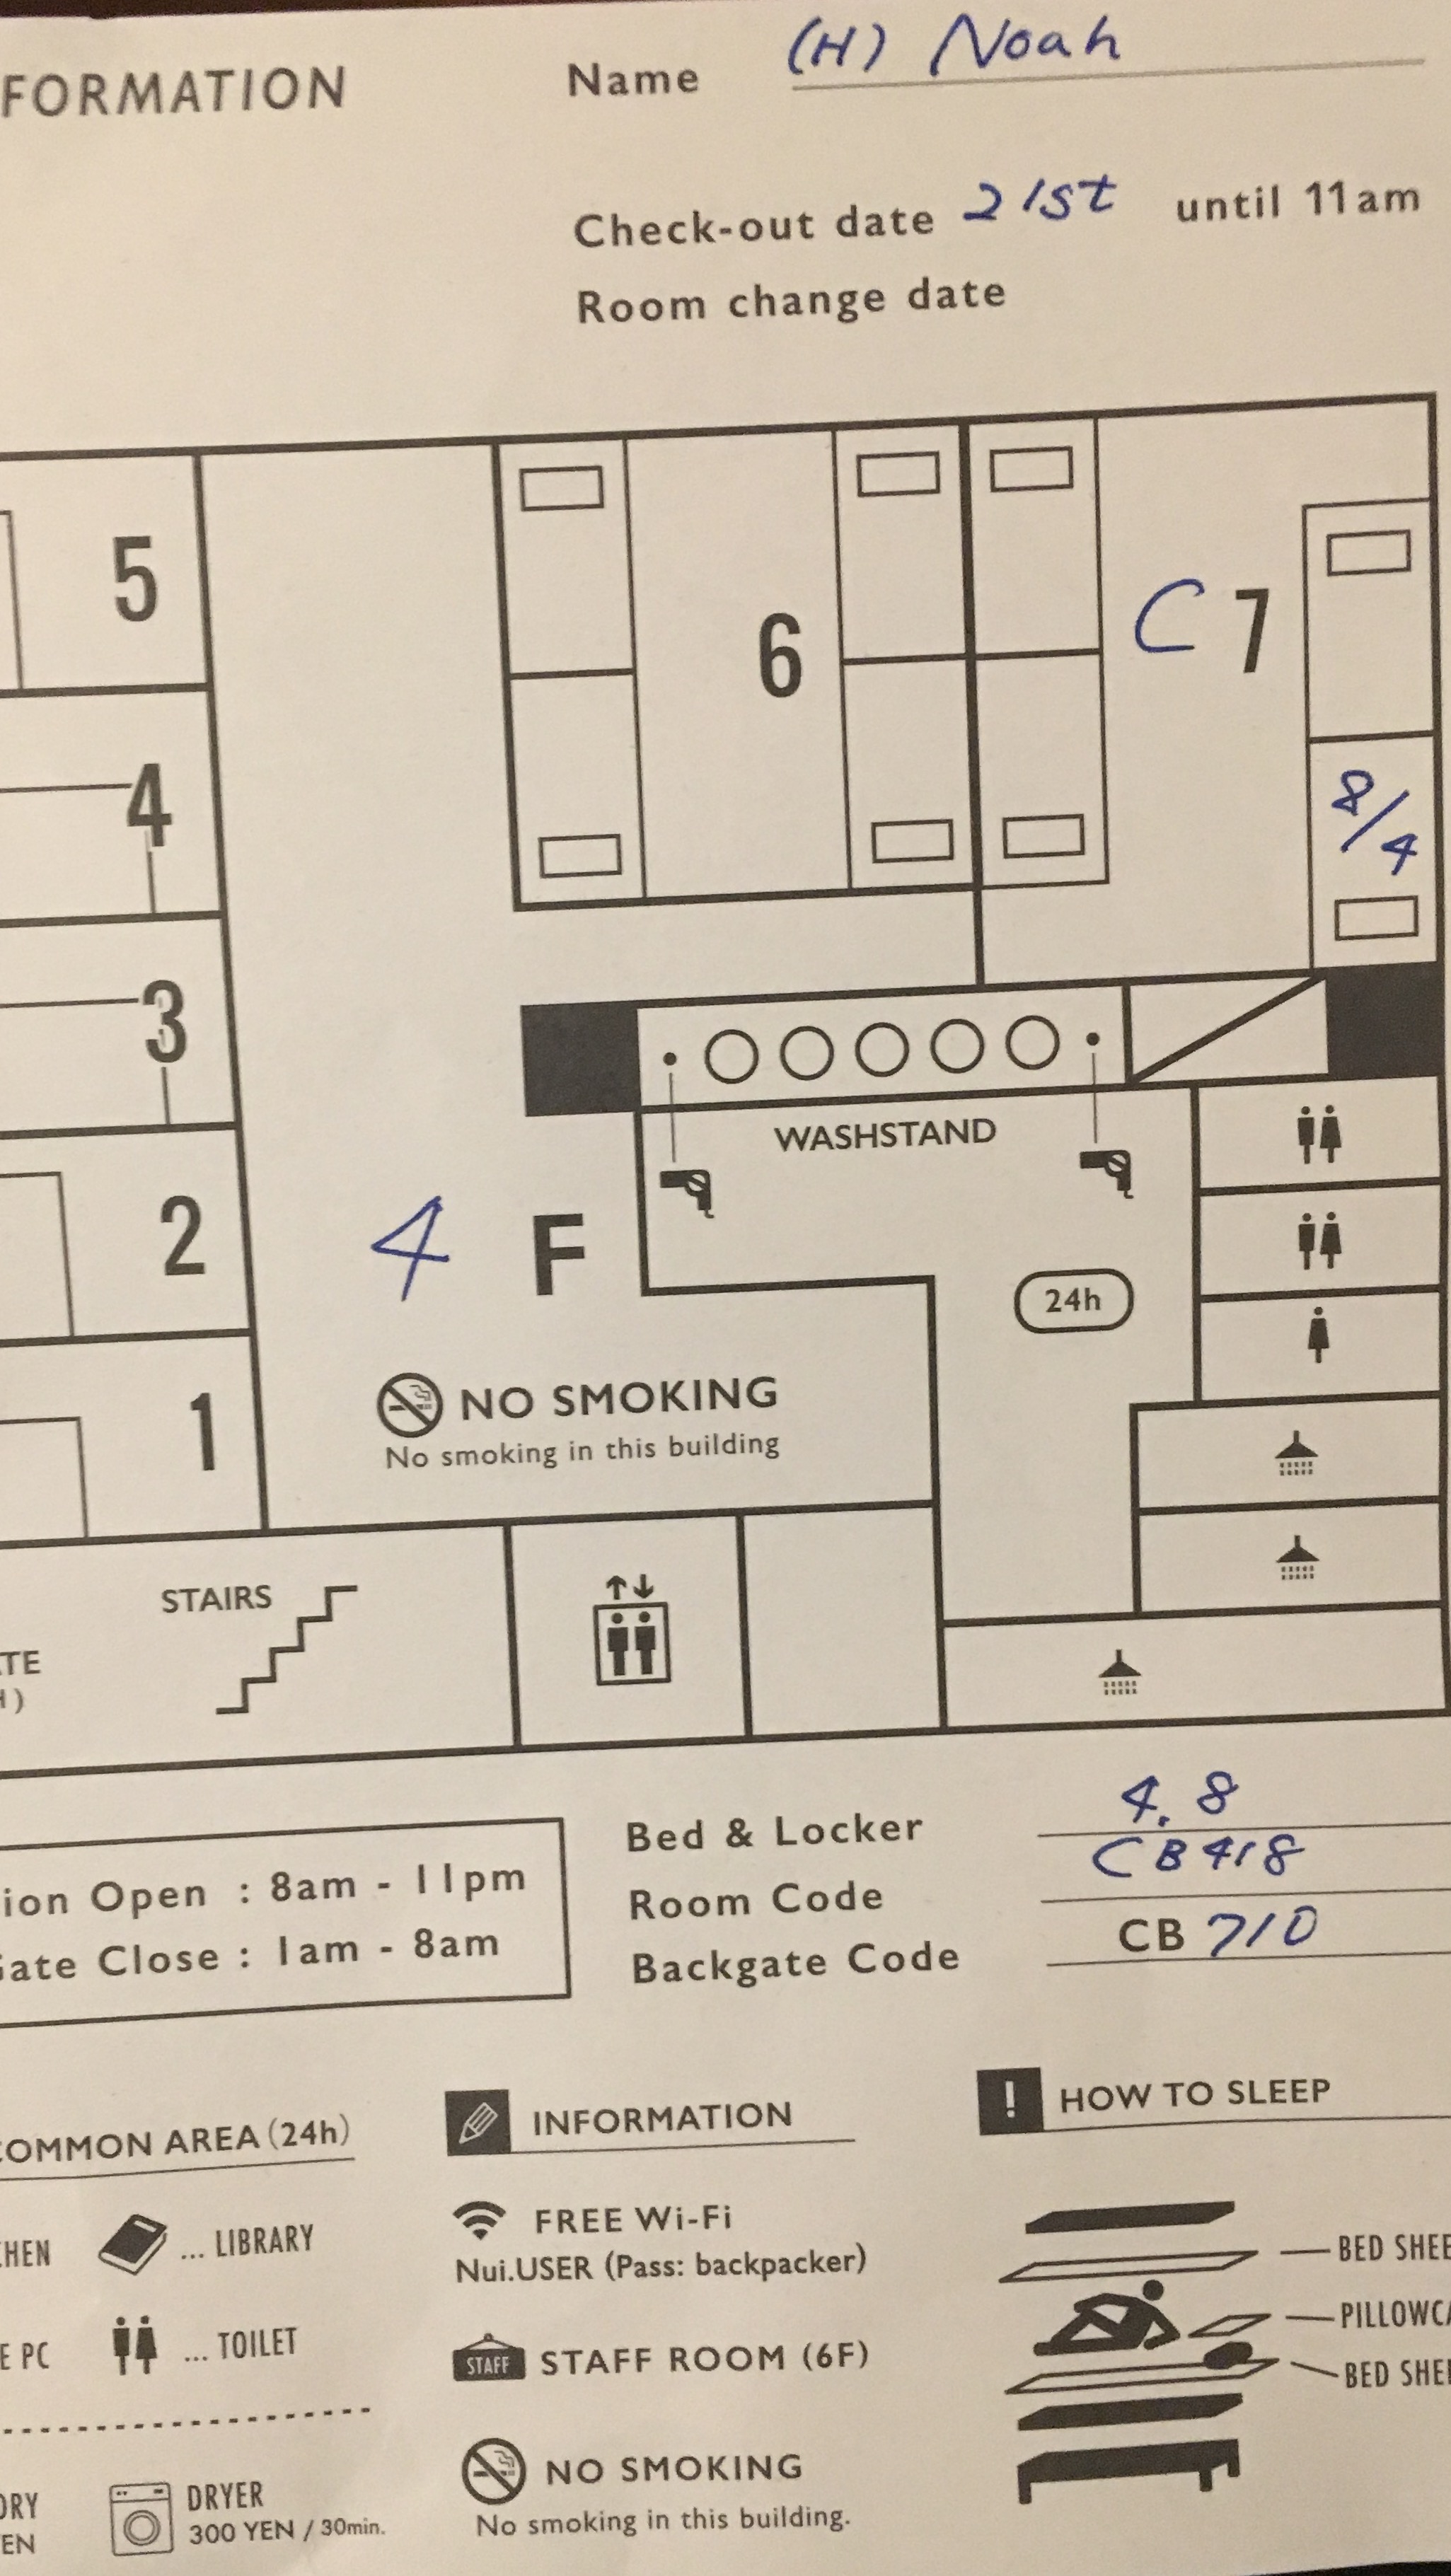 FORMATION
Name (H) Noah
Check-out date 21st until 11am
Room change date
5
6
C 7
4
8/4
3
WASHSTAND
2
4 F
24h
1
NO SMOKING
No smoking in this building
STAIRS
TE
H)
Bed & Locker 4. 8
Room Code CB418
Backgate Code CB 710
ion Open : 8am - 11pm
Gate Close : 1am - 8am
COMMON AREA (24h)
CHEN
... LIBRARY
E PC
... TOILET
DRY
EN
DRYER
300 YEN / 30min.
INFORMATION
FREE Wi-Fi
Nui.USER (Pass: backpacker)
STAFF
STAFF ROOM (6F)
NO SMOKING
No smoking in this building.
! HOW TO SLEEP
BED SHEE
PILLOWCA
BED SHEE